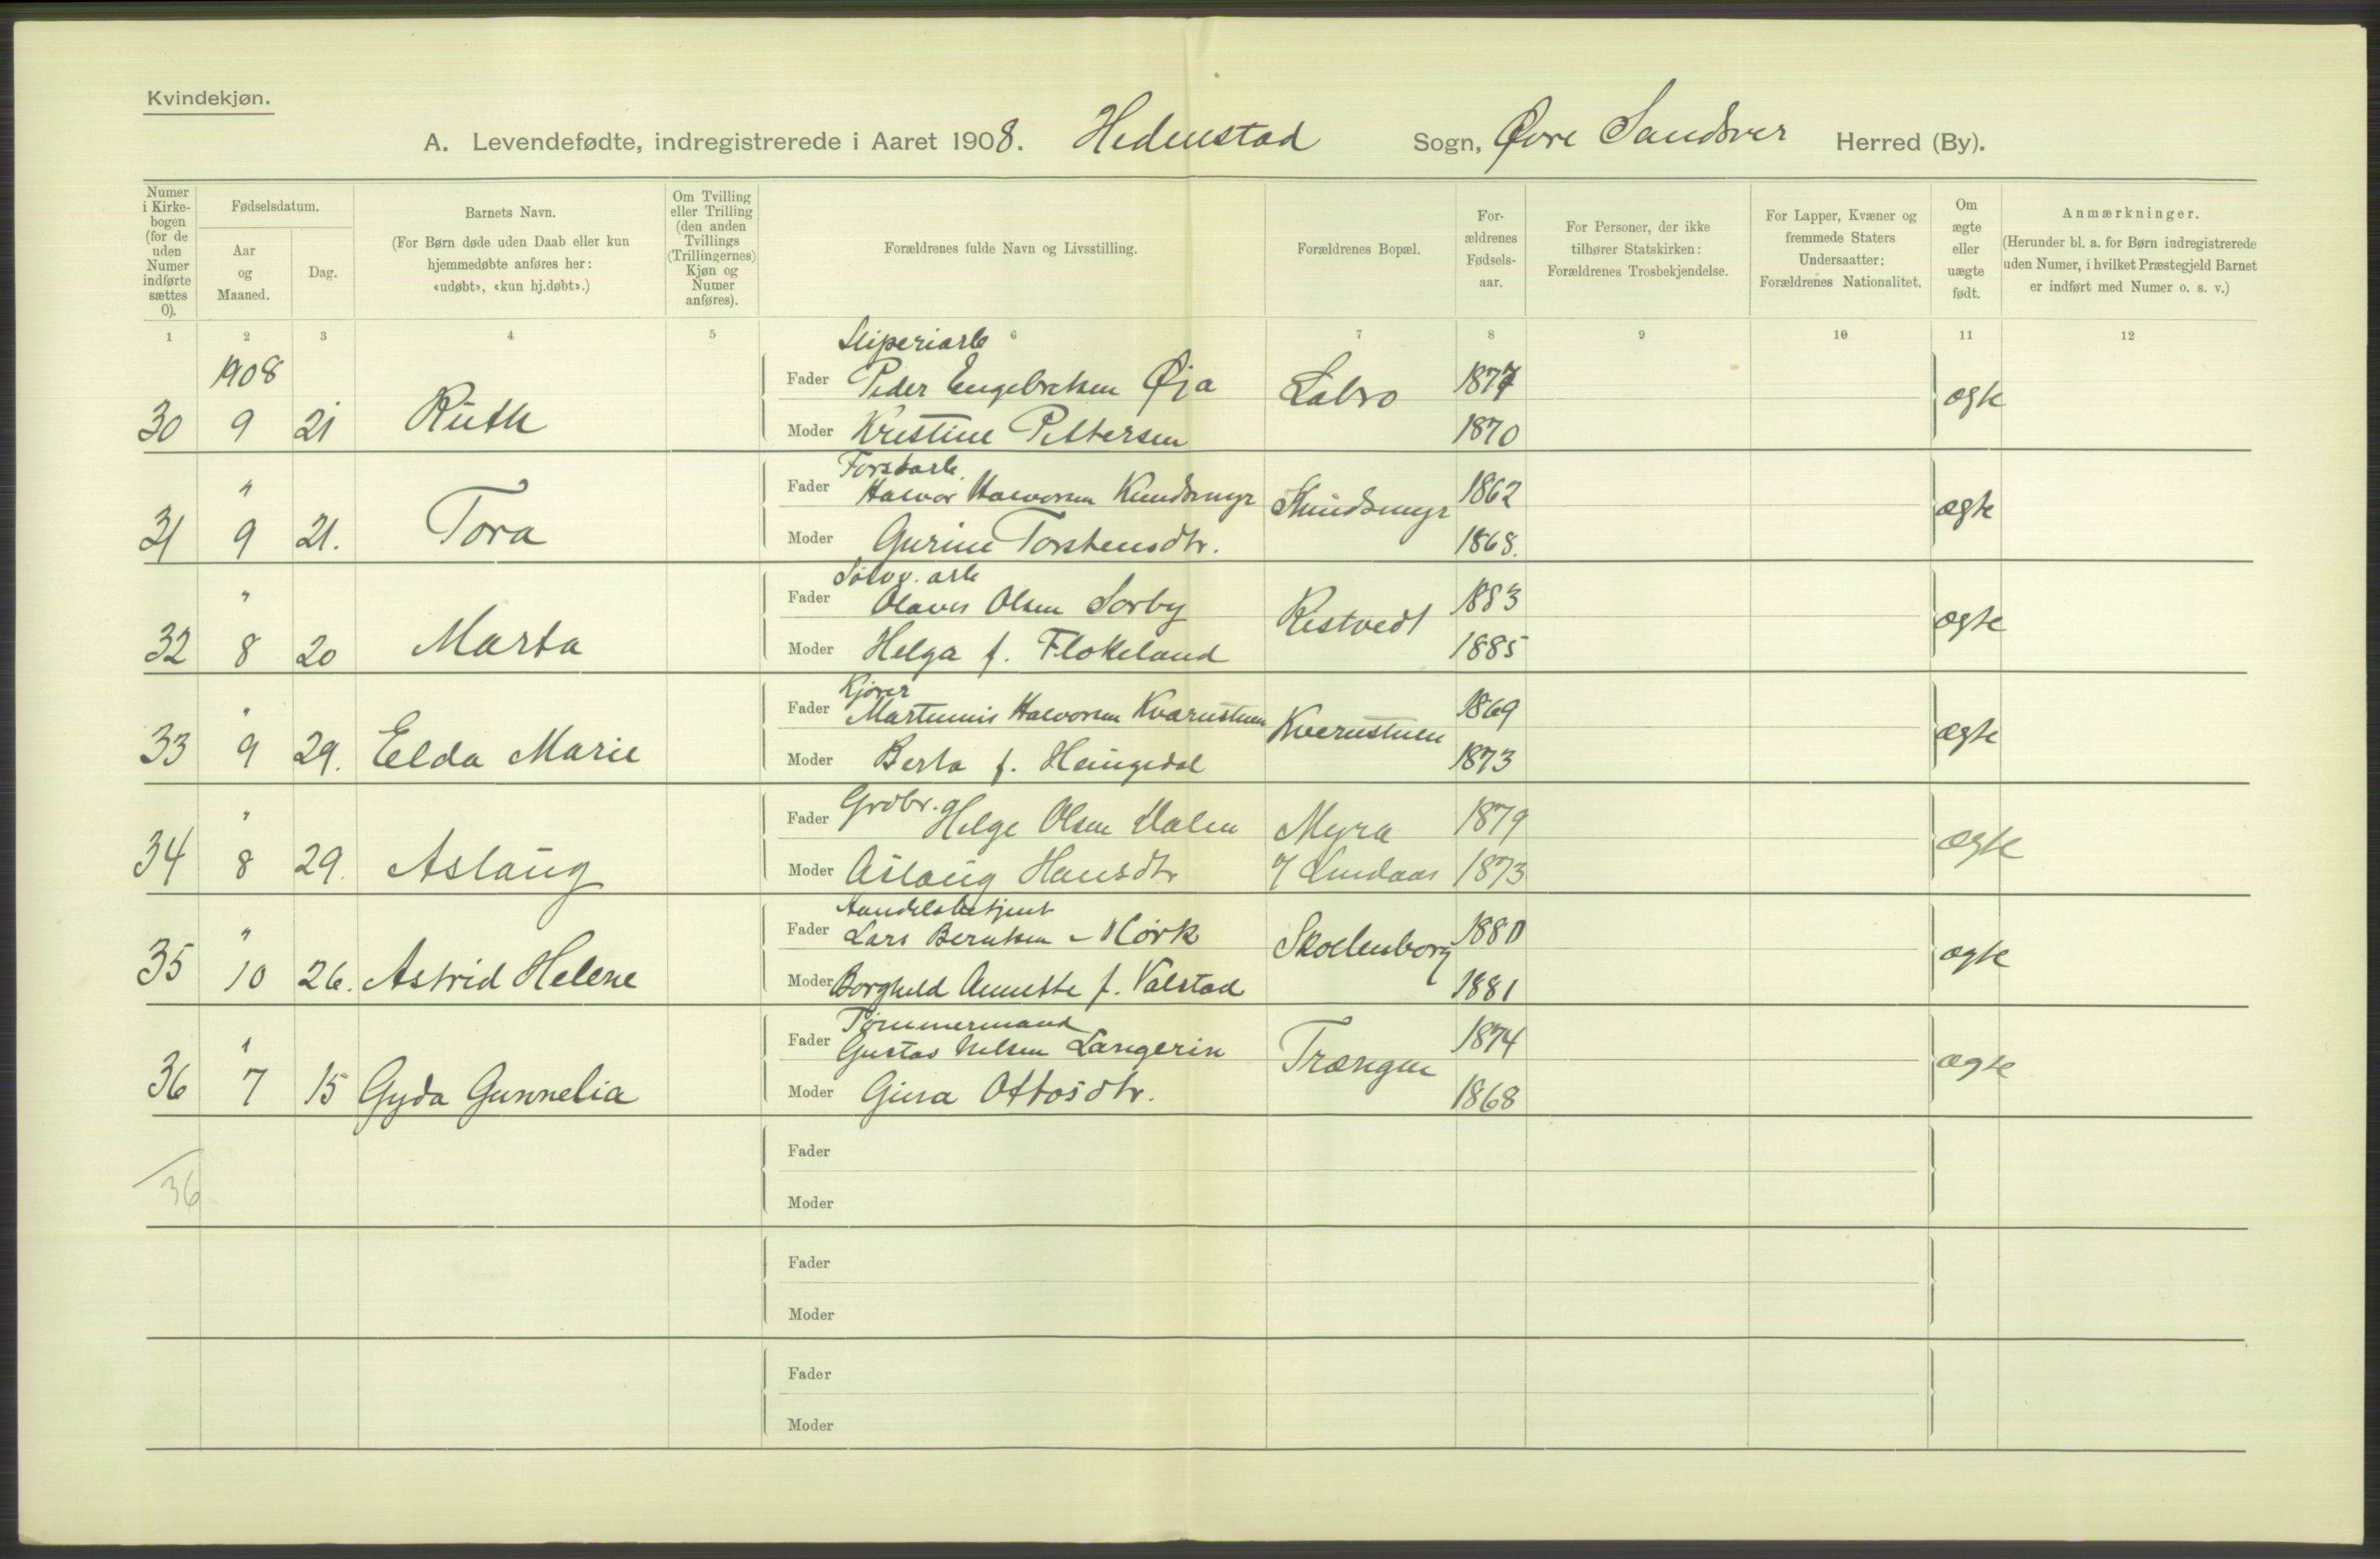 Kvindekjøn.
A. Levendefødte, indregistrerede i Aaret 1908. Hedenstad Sogn, Øvre Sandsver Herred (By).
Numer i Kirke-bogen (for de uden Numer indførte sættes 0).
Fødselsdatum.
Aar og Maaned.
Dag.
Barnets Navn.
(For Børn døde uden Daab eller kun hjemmedøbte anføres her: «udøbt», «kun hj.døbt».)
Om Tvilling eller Trilling (den anden Tvillings (Trillingernes) Kjøn og Numer anføres).
Forældrenes fulde Navn og Livsstilling.
Forældrenes Bopæl.
For-ældrenes Fødsels-aar.
For Personer, der ikke tilhører Statskirken: Forældrenes Trosbekjendelse.
For Lapper, Kvæner og fremmede Staters Undersaatter: Forældrenes Nationalitet.
Om ægte eller uægte født.
Anmærkninger.
(Herunder bl. a. for Børn indregistrerede uden Numer, i hvilket Præstegjeld Barnet er indført med Numer o. s. v.)
1 2 3 4 5 6 7 8 9 10 11 12
Sliperiarb
1908 Fader Peder Engebretsen Øja Labro 1877 ægte
30 9 21 Ruth Moder Kristine Pettersen 1870
Forstarb.
" Fader Halvor Halvorsen Kundsmyr 1862 ægte
31 9 21. Tora Moder Gurine Torstensdtr. 1868.
Sølvv. arb
" Fader Olaves Olsen Sørby Kistvedt 1883 ægte
32 8 20 Marta Moder Helga f. Flokeland 1885
Kjører
" Fader Martinius Halvorsen Kværnstuen Kvernstuen 1869 ægte
33 9 29. Elda Marie Moder Berta f. 1873
" Fader Grdbr. Helge Olsen Dalen Myra 1879 ægte
34 8 29. Aslaug Moder Aslaug Hansdtr 1873
Handelsbetjent
" Fader Lars Berntsen Mørk Skollenborg 1880 ægte
35 10 26. Astrid Helene Moder Borghild Annette f. Valstad 1881
Tømmermand
" Fader Gustav Nilsen Langerin Trængen 1874 ægte
36 7 15 Gyda Gunnelia Moder Gina Ottosdtr. 1868
Fader
36
Moder
Fader
Moder
Fader
Moder